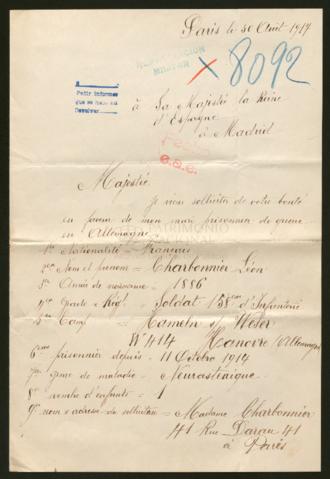 Paris le 30 Août 1917
X 8092
Pedir informes
que se han de
Devolver
à Sa Majesté la Reine
d'Espagne
à Madrid
Majesté
Je viens solliciter de votre bonté
en faveur de mon mari prisonnier de guerre
en Allemagne
PATRIMONIO
1º Nationalité = Français
2em Nom et prénom = Charbonnier Léon
3º Année de naissance = 1886
4º Grade & Régt = Soldat 158em d'Infanterie
5em Camp = Hameln s/ Weser
Nº 414 Hanovre (Allemagne)
6em prisonnier depuis = 11 Octobre 1914
7em genre de maladie = Neurastéaique
8º nombre d'enfants = 1
9º nom & adresse du solliciteur = Madame Charbonnier
41 Rue Dareau 41
à Paris